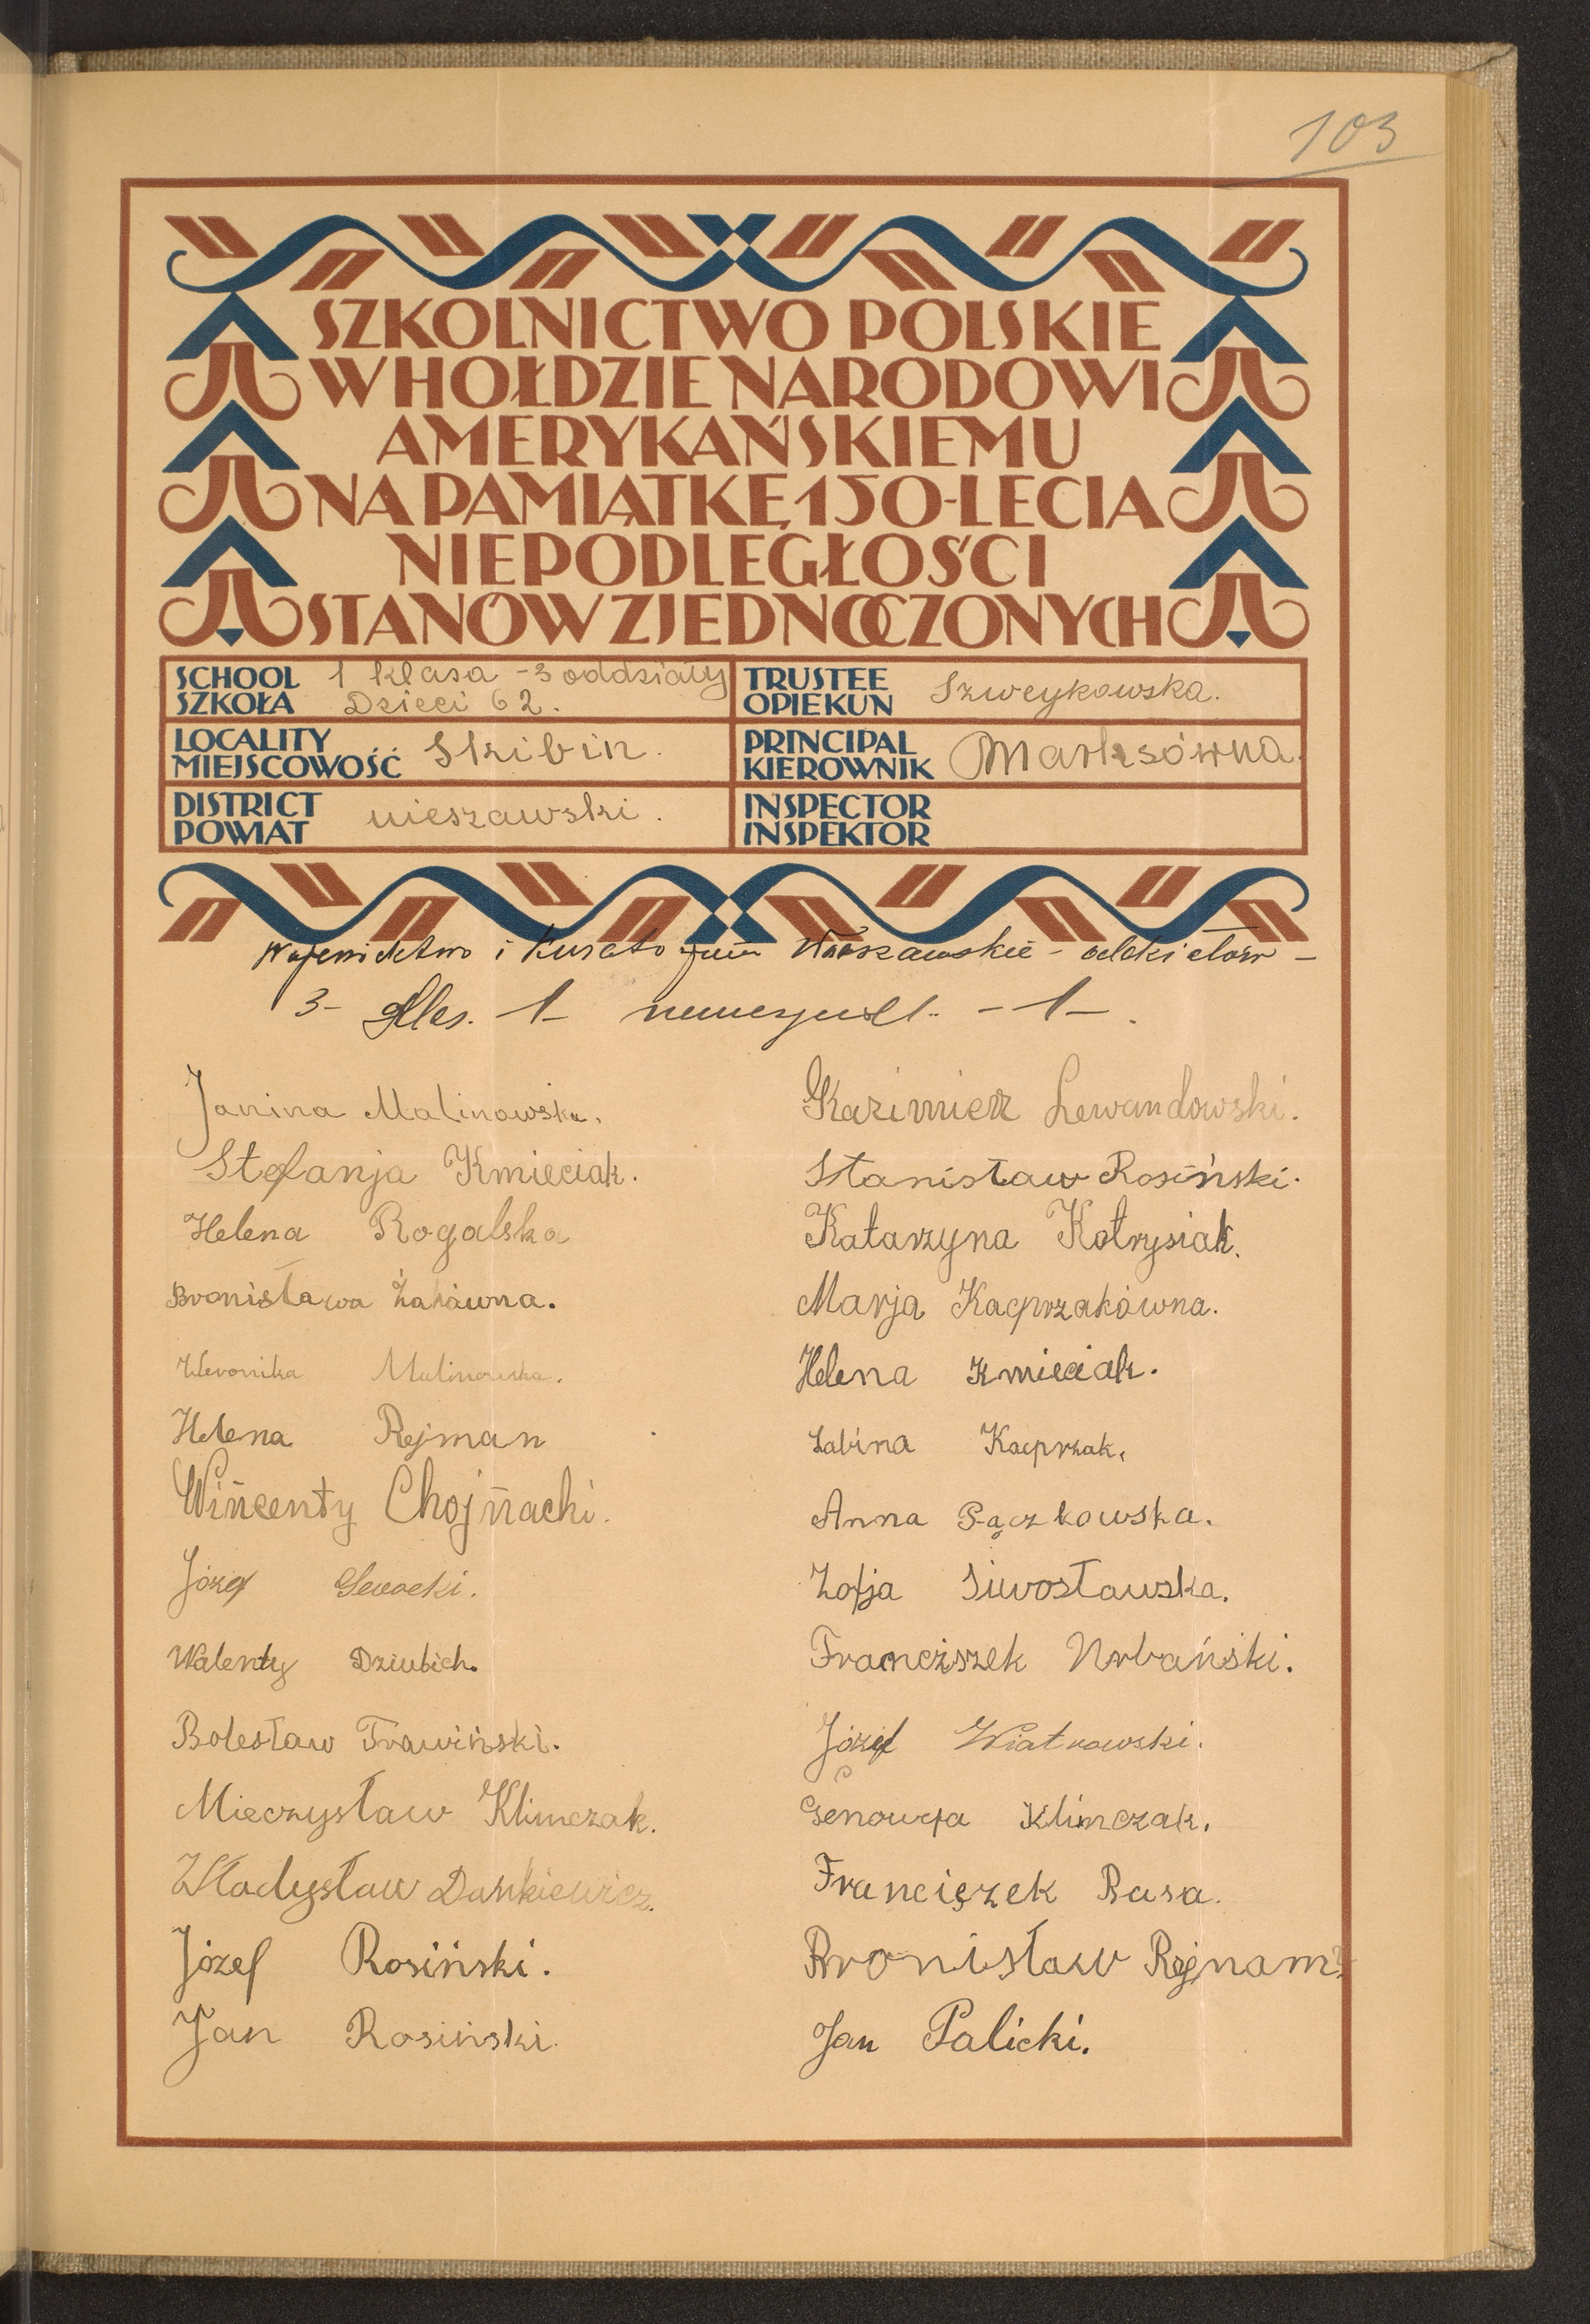 103
SZKOLNICTWO POLSKIE
W HOŁDZIE NARODOWI
AMERYKAŃSKIEMU
NA PAMIĄTKĘ 150-LECIA
NIEPODLEGŁOŚCI
STANÓW ZJEDNOCZONYCH
SCHOOL 1 klasa - 3 oddziały
SZKOŁA Dzieci 62.
TRUSTEE
OPIEKUN Szweykowska.
LOCALITY
MIEJSCOWOŚĆ Skibin.
PRINCIPAL
KIEROWNIK Marksówna.
DISTRICT
POWIAT nieszawski.
INSPECTOR
INSPEKTOR
Wojewódctwo i Kuratorjum Warszawskie -
3- 1- - 1-.
Janina Malinowska.
Stefanja Kmieciak.
Helena Rogalska
Bronisława Żakówna.
Weronika Malinowska.
Helena Rejman
Wińcenty Chojńacki.
Józef
Walenty Dziubich.
Bolesław Trawiński.
Mieczysław Klimczak.
Władysław Dankiewicz.
Józef Rosiński.
Jan Rosiński.
Kazimierz Lewandowski.
Stanisław Rosiński.
Katarzyna Kotrysiak.
Marja Kacprzakówna.
Helena Kmieciak.
Sabina Kacprzak.
Anna Pączkowska.
Zofja Siwosławska.
Franciszek Urbański.
Józef Wiatrowski.
Genowefa Klimczak.
Franciszek Basa.
Bronisław Rejnam.
Jan Palicki.